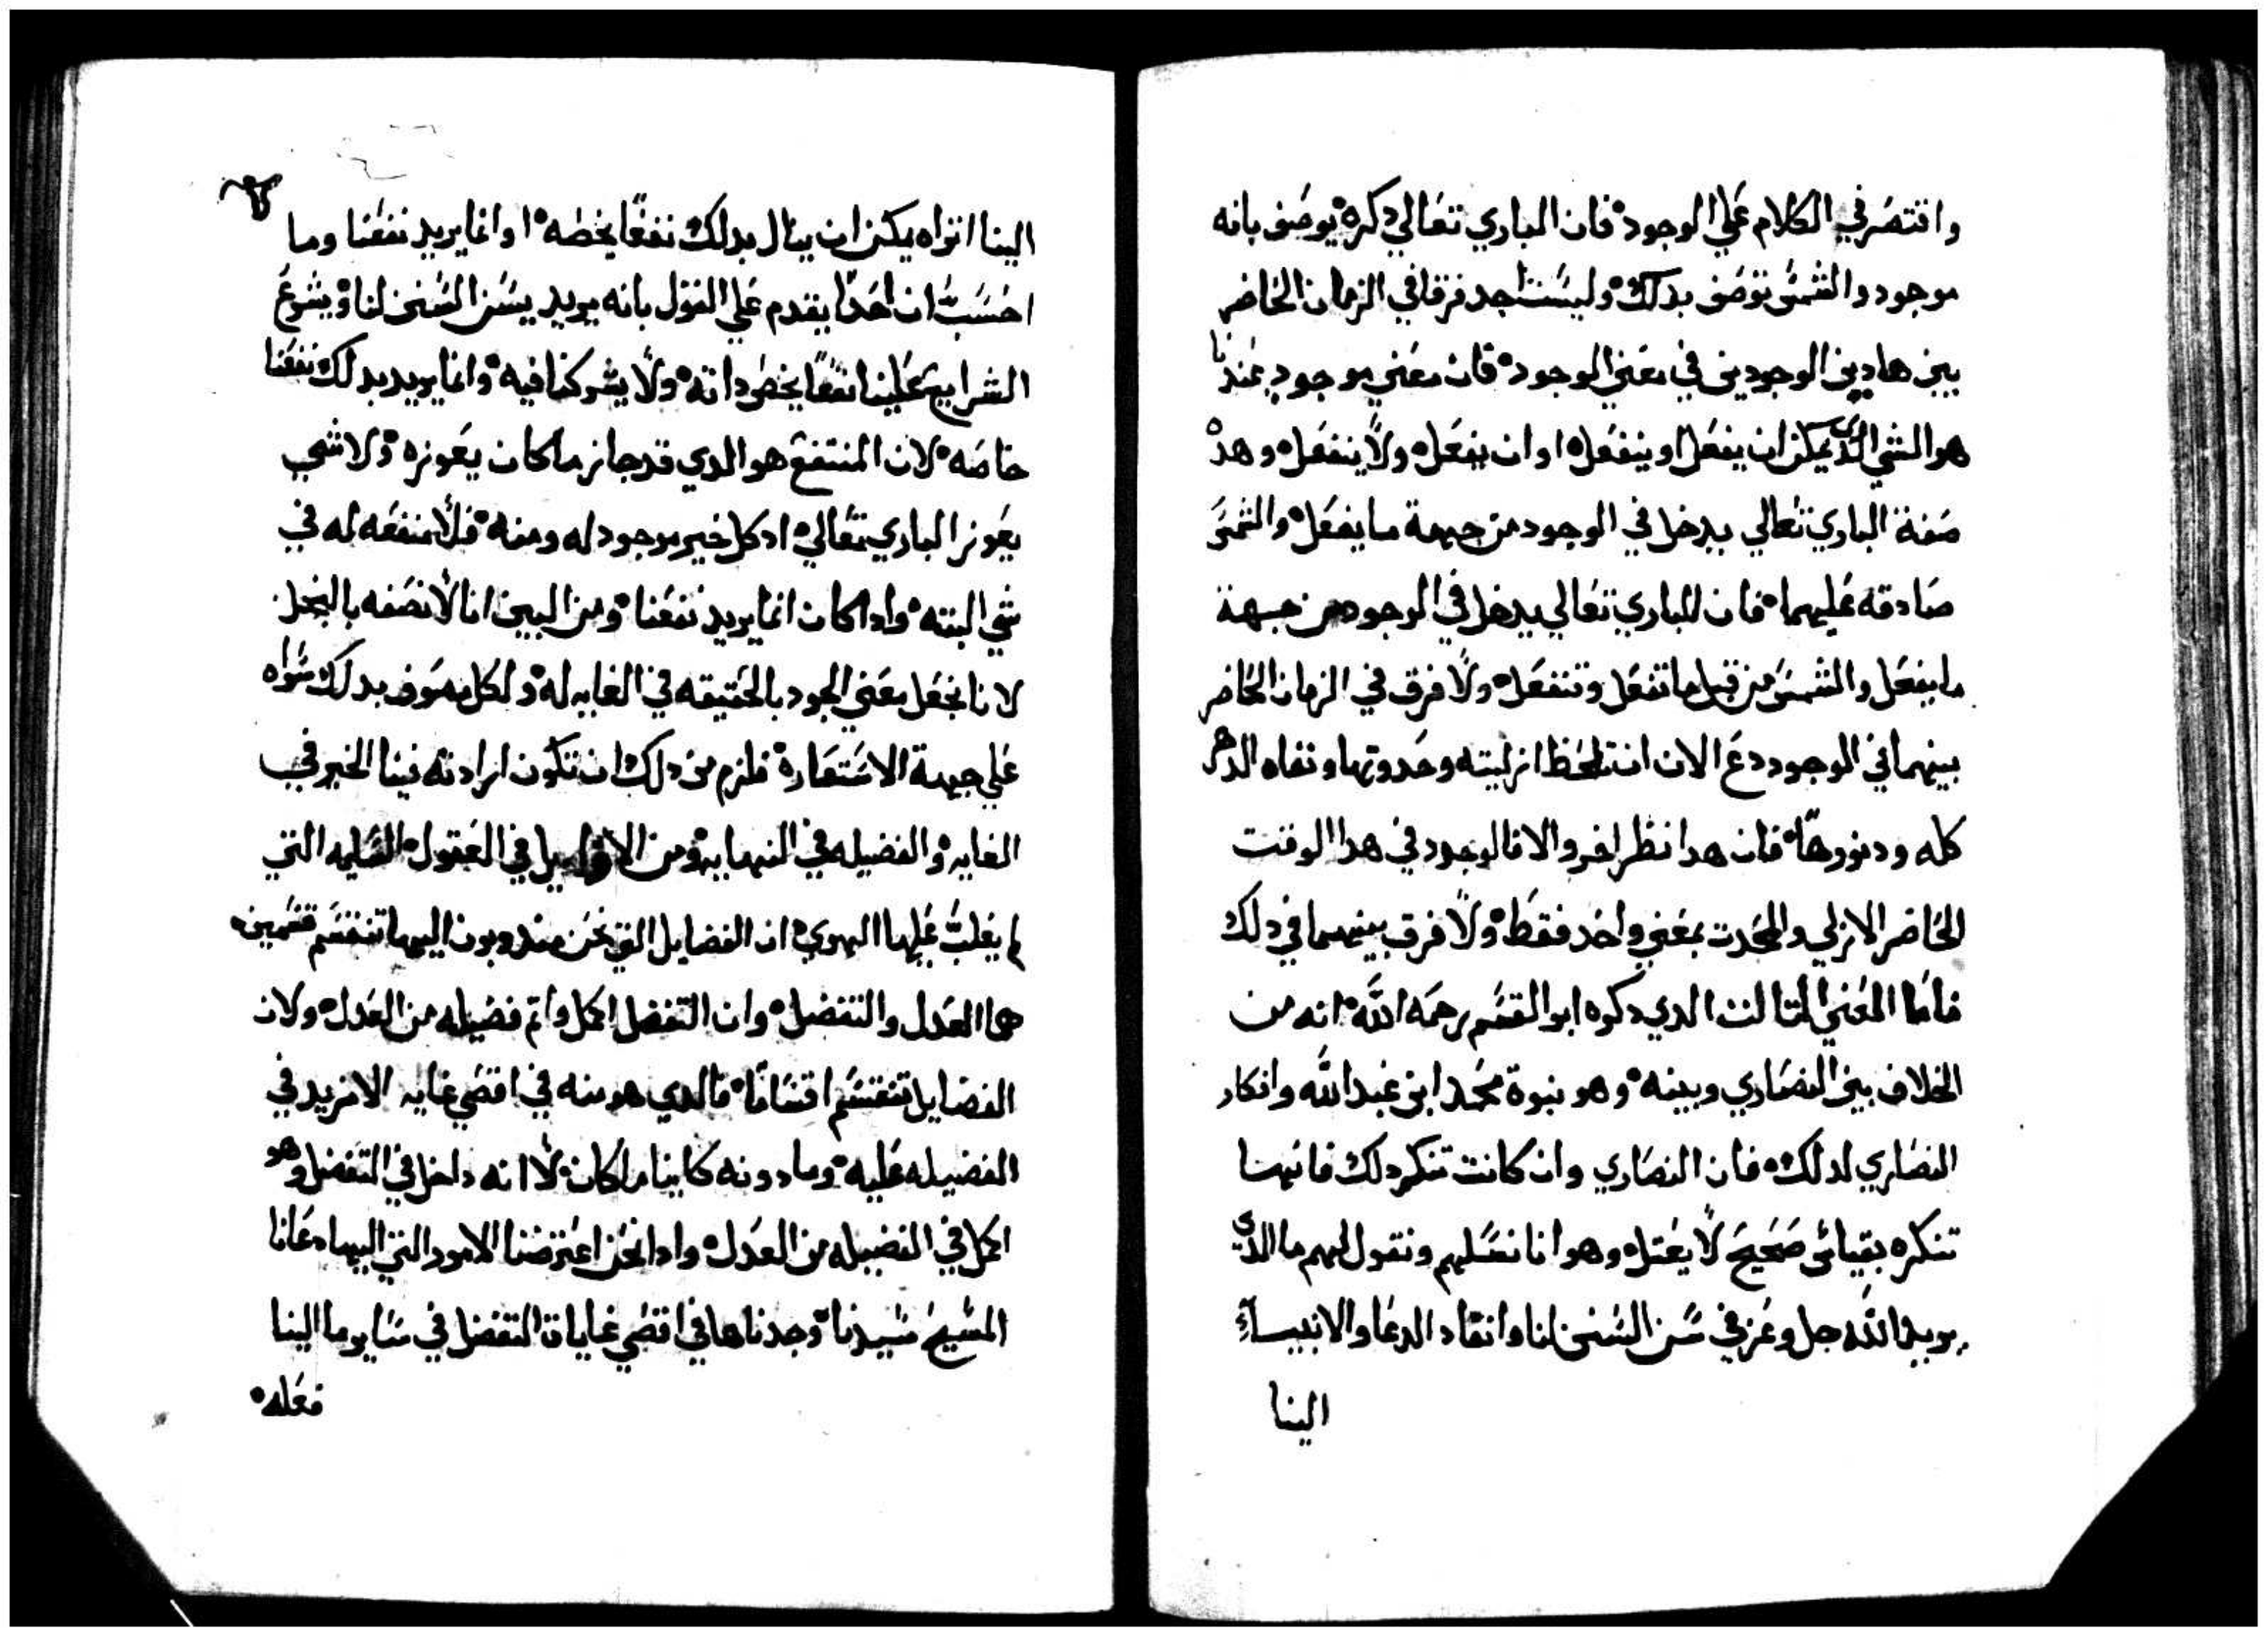 واقتصر في الكلام علي الوجود فان الباري تعالي دكره يوصف بانه
موجود والشمس توصف بدلك وليست اجد فرقا في الزمان الحاضر
بين هادين الوجودين في معني الوجود فان معني موجود عندنا
هو الشي الدي يمكن ان يفعل او ينفعل او ان يفعل ولا ينفعل وهده
صفة الباري تعالي يدخل في الوجود من جهة ما يفعل والشمس
صادقه عليهما فان للباري تعالي يدخل في الوجود من جهة
ما يفعل والشمس من قبل ما تفعل وتنفعل ولا فرق في الزمان الحاضر
بينهما في الموجود دع الان ان تلحظ ازليته وحدوتها وتفاه الدهر
كله ودنورها فان هدا نظر اخر والا فالوجود في هدا الوقت
الحاضر الازلي والمحدت بمعني واحد فقط ولا فرق بينهما في دلك
فاما المعني التالت الدي دكره ابو القسم رحمه الله انه من
الخلاف بين النصاري وبينه وهو نبوة محمد ابن عبد الله وانكار
النصاري لدلك فان النصاري وان كانت تنكر دلك فانها
تنكره بقياس صحيح لا يعتل وهو انا نسلهم ونقول لهم ما الدي
يريد الله جل وعز في سن السنن لنا وانفاد الدعا والانبيآء
الينا
الينا اتراه يمكن ان ينال بدلك نفعًا يخصه او انما يريد نفعنا وما
احسب ان احدًا يقدم علي القول بانه يريد يسن السنن لنا ويشرع
الشرايع علينا نفعًا يخص داته ولا يشركنا فيه وانما يريد بدلك نفعنا
خاصه لان المنتفع هو الدي قد جاز ما كان يعوزه ولا شي
يعوز الباري تعالي اد كل خير موجود له ومنه فلا منفعه له في
شي البته وادا كان انما يريد نفعنا ومن البين انا لا نصفه بالبخل
لانا نجعل معني الجود بالحقيقه في الغايه له ولكل موصوف بدلك سواه
علي جهة الاستعارة فلزم من دلك ان تكون ارادته فينا الخير في
الغايه والفضيله في النهايه ومن الاوايل في العقول السليمه التي
لم يغلب عليها الهوي ان الفضايل التي نحن مندوبون اليها تنقسم قسمين
هما العدل والتفضل وان التفضل اكمل واتم فضيله من العدل ولان
الفضايل تنقسم اقسامًا فالدي هو منه في اقصي غايه الا مزيد في
الفضيله عليه وما دونه كاينا ما كان لا انه داخل في التفضل وهو
اكمل في الفضيله من العدل وادا نحن اعترضنا الامور التي اليها دعانا
المسيح سيدنا وجدناها في اقصي غايات التفضل في ساير ما الينا
فعله